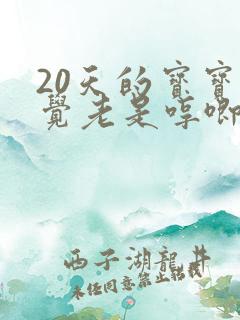 20天的寳寳
覺老是哼唧
西子湖龍井
未经同意禁止转载